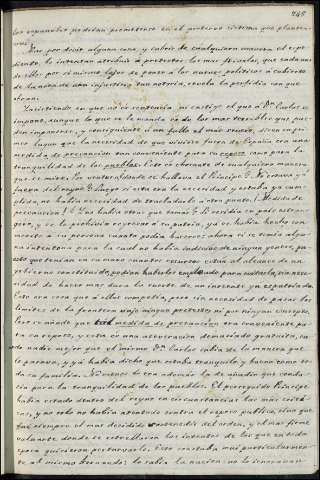 245
los españoles podrian prometerse en el gobierno sistema que plantea-
ron!
Mas por decir alguna cosa, y cubrir de cualquiera manera el espe-
diente, lo intentan atribuir á pretestos los mas frivolos, que cada uno
de ellos por si mismo lejos de poner á los nuevos politicos á cubierto
de la nota de una injusticia tan notoria, revela la perfidia con que
obran.
Insistiendo en que no es sentencia ni castigo el que á Dn. Carlos se
impone, aunque lo que se le manda es de los mas terribles que pue-
den imponerse, y consiguiente á un fallo el mas serio, dicen en pri-
mer lugar que la necesidad de que viviese fuera de España era una
medida de precaucion tan conveniente para su reposo, como para la
tranquilidad de los pueblos. Esto es chocante de cualquiera manera
que se mire. Por ventura, donde se hallaba el Principe? No estaba yá
fuera del reyno? Luego si esta era la necesidad y estaba ya cum-
plida, no habia necesidad de trasladarlo á otro punto. Medida de
precaucion! Que habia otras que tomar? Si residia en pais estran-
gero, y se le prohibia regresar á su patria, yá se habia hecho con
respeto á su persona cuanto podia hacerse. Ahora si se temia algu-
na intentona para la cual no habia indicios de ningun genero, pu-
esto que tenian en su mano cuantos recursos estan al alcance de un
gobierno constituido, podian haberlos empleado para evitarla, sin nece-
sidad de hacer mas dura la suerte de un inocente ya espatriado.
Esto era cosa que á ellos competia, pero sin necesidad de pasar los
limites de la frontera bajo ningun pretesto, ni por ningun concepto,
lo se añade que tal medida de precaucion era conveniente pa-
ra su reposo, y esta es una aseveracion demasiado gratuita, na-
die mejor que el mismo Dn. Carlos sabia de la manera que
lo pasaba, y yá habia dicho que estaba tranquilo y bueno como to-
da su familia. No menos lo era ademas la de añadir que conve-
nia para la tranquilidad de los pueblos. El perseguido Principe
habia estado dentro del reyno en circunstancias las mas criti-
cas, y no solo no habia atentado contra el reposo publico, sino que
fue siempre el mas decidido sostenedor del orden, y el mas firme
valuarte donde se estrellaron los intentos de los que en toda
epoca quisieron perturbarlo. Esto constaba mui particularmen-
te al mismo Fernando: lo sabia la nacion: no lo ignoraban